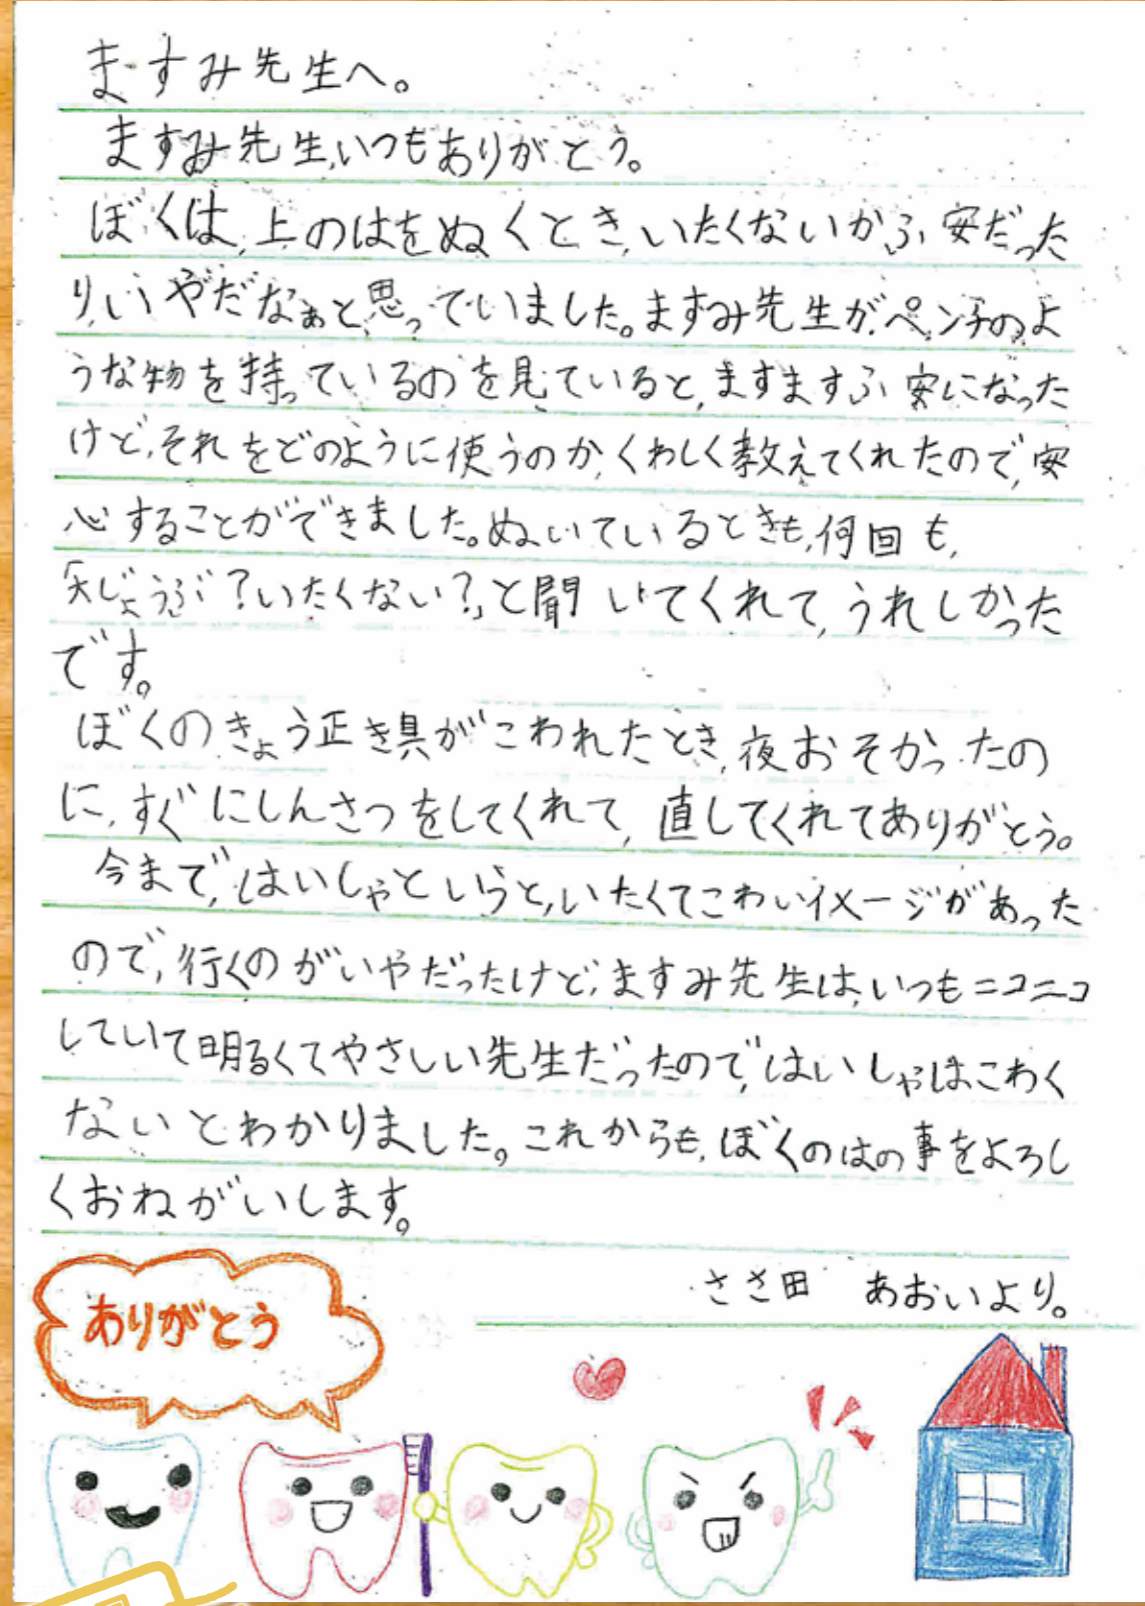 ますみ先生へ。
ますみ先生、いつもありがとう。
ぼくは、上のはをぬくとき、いたくないかふ安だった
り、いやだなぁと思っていました。ますみ先生が、ペンチのよ
うな物を持っているのを見ていると、ますますふ安になった
けど、それをどのように使うのか、くわしく教えてくれたので、安
心することができました。ぬいているときも、何回も、
「大じょうぶ?いたくない?」と聞いてくれて、うれしかった
です。
ぼくのきょう正き具がこわれたとき、夜おそかったの
に、すぐにしんさつをしてくれて、直してくれてありがとう。
今まで、はいしゃというと、いたくてこわいイメージがあった
ので、行くのがいやだったけど、ますみ先生は、いつもニコニコ
していて明るくてやさしい先生だったので、はいしゃはこわく
ないとわかりました。これからも、ぼくのはの事をよろし
くおねがいします。
ささ田 あおいより。
ありがとう